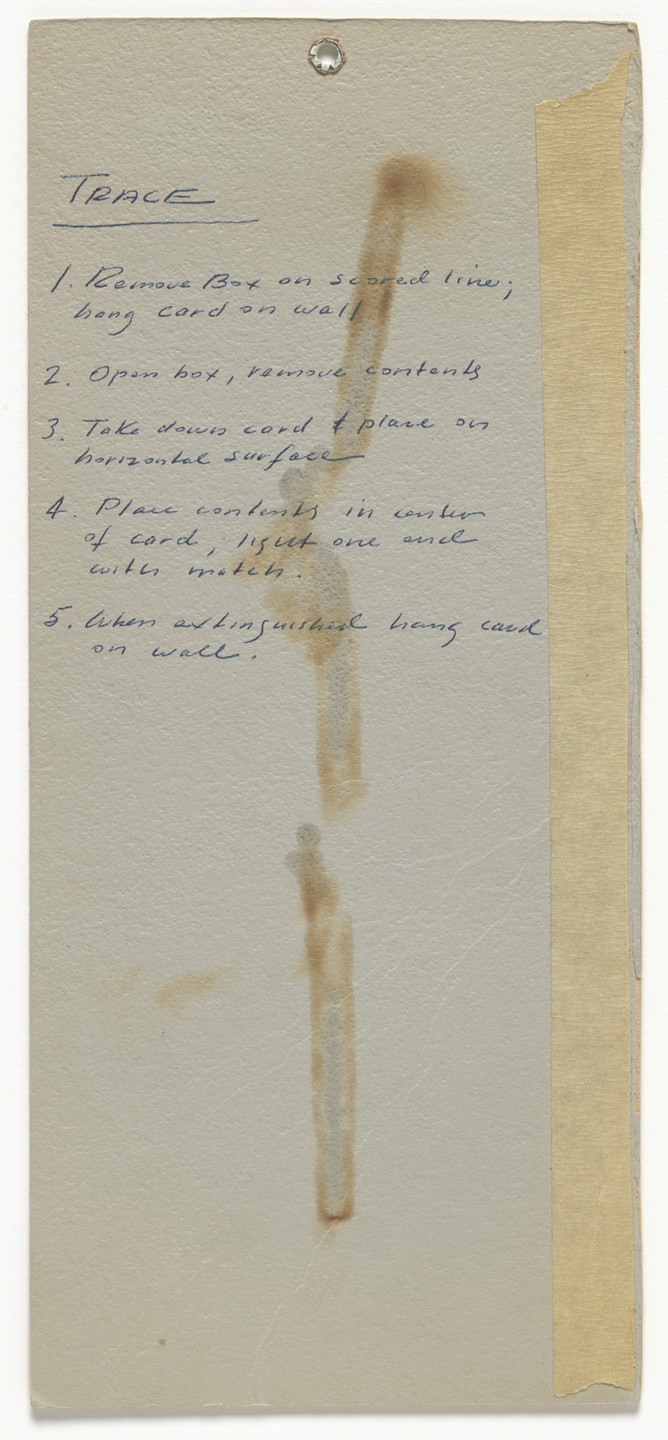 TRACE
1. Remove Box on scored line;
hang card on wall
2. Open box, remove contents
3. Take down card & place on
horizontal surface
4. Place contents in center
of card, light one end
with match.
5. When extinguished hang card
on wall.